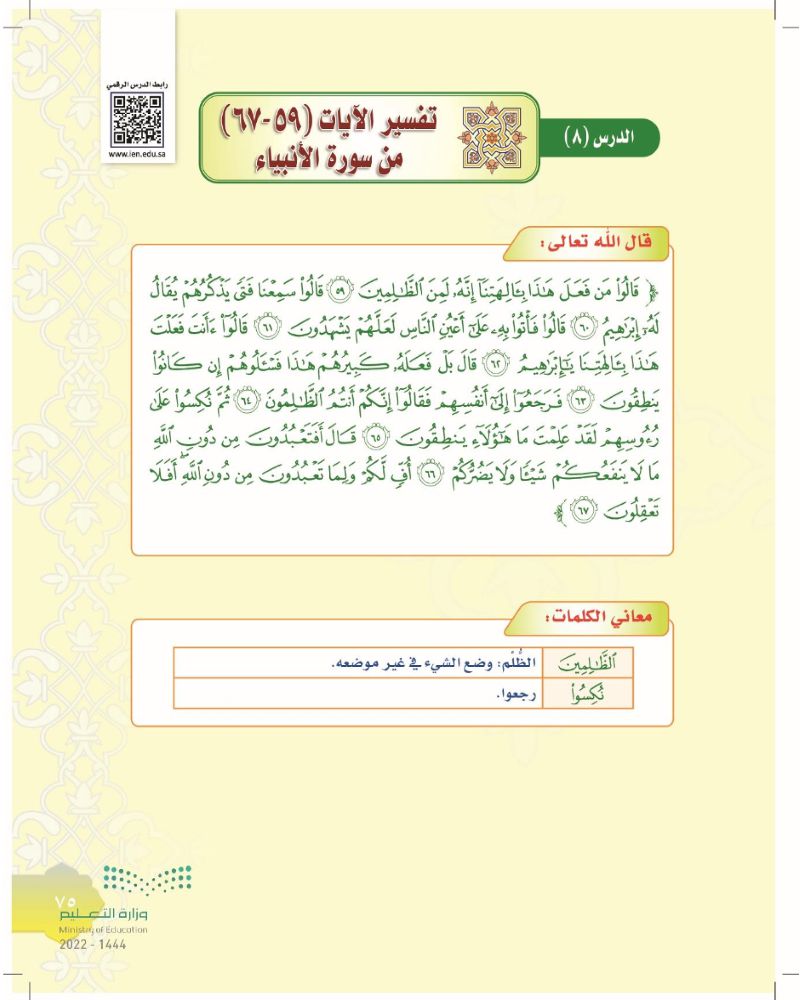 رابط الدرس الرقمي
www.ien.edu.sa
الدرس (٨)
تفسير الآيات (٥٩-٦٧)
من سورة الأنبياء
قال الله تعالى:
﴿ قَالُوا۟ مَن فَعَلَ هَـٰذَا بِـَٔالِهَتِنَآ إِنَّهُۥ لَمِنَ ٱلظَّـٰلِمِينَ ٥٩ قَالُوا۟ سَمِعْنَا فَتًى يَذْكُرُهُمْ يُقَالُ
لَهُۥٓ إِبْرَٰهِيمُ ٦٠ قَالُوا۟ فَأْتُوا۟ بِهِۦ عَلَىٰٓ أَعْيُنِ ٱلنَّاسِ لَعَلَّهُمْ يَشْهَدُونَ ٦١ قَالُوٓا۟ ءَأَنتَ فَعَلْتَ
هَـٰذَا بِـَٔالِهَتِنَا يَـٰٓإِبْرَٰهِيمُ ٦٢ قَالَ بَلْ فَعَلَهُۥ كَبِيرُهُمْ هَـٰذَا فَسْـَٔلُوهُمْ إِن كَانُوا۟
يَنطِقُونَ ٦٣ فَرَجَعُوٓا۟ إِلَىٰٓ أَنفُسِهِمْ فَقَالُوٓا۟ إِنَّكُمْ أَنتُمُ ٱلظَّـٰلِمُونَ ٦٤ ثُمَّ نُكِسُوا۟ عَلَىٰ
رُءُوسِهِمْ لَقَدْ عَلِمْتَ مَا هَـٰٓؤُلَآءِ يَنطِقُونَ ٦٥ قَالَ أَفَتَعْبُدُونَ مِن دُونِ ٱللَّهِ
مَا لَا يَنفَعُكُمْ شَيْـًٔا وَلَا يَضُرُّكُمْ ٦٦ أُفٍّ لَّكُمْ وَلِمَا تَعْبُدُونَ مِن دُونِ ٱللَّهِ ۖ أَفَلَا
تَعْقِلُونَ ٦٧ ﴾
معاني الكلمات:
ٱلظَّـٰلِمِينَ الظُّلْم: وضع الشيء في غير موضعه.
نُكِسُوا۟ رجعوا.
٧٥
وزارة التعليم
Ministry of Education
2022 - 1444